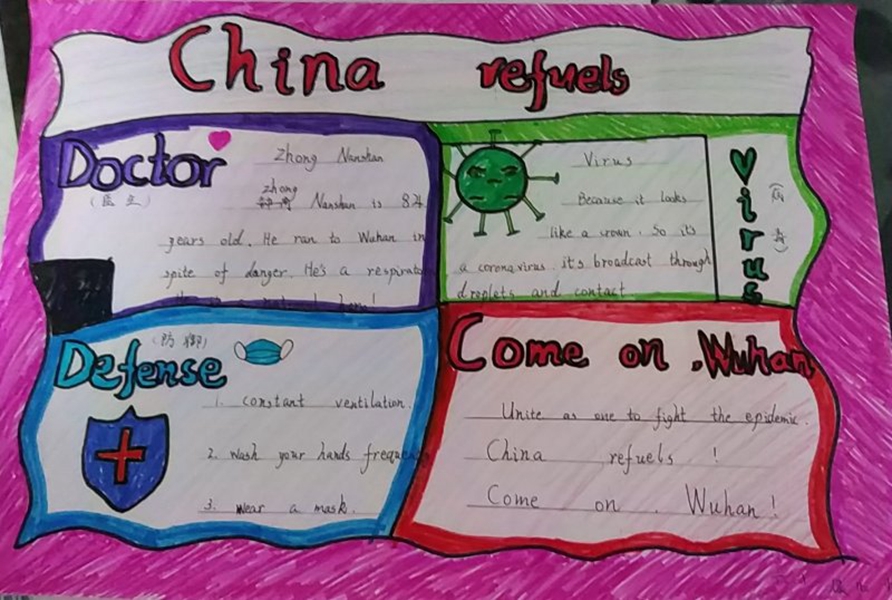 China refuels
Doctor
Zhong Nanshan
zhong
Nanshan is 84
years old. He ran to Wuhan in
spite of danger. He's a respirato
Virus
Because it looks
like a crown. So it's
a coronavirus. it's broadcast through
droplets and contact
Virus
(病毒)
Defense
(防御)
1. constant ventilation.
2. wash your hands freque
3. wear a mask.
Come on .Wuhan
Unite as one to fight the epidemic.
China refuels !
Come on . Wuhan !